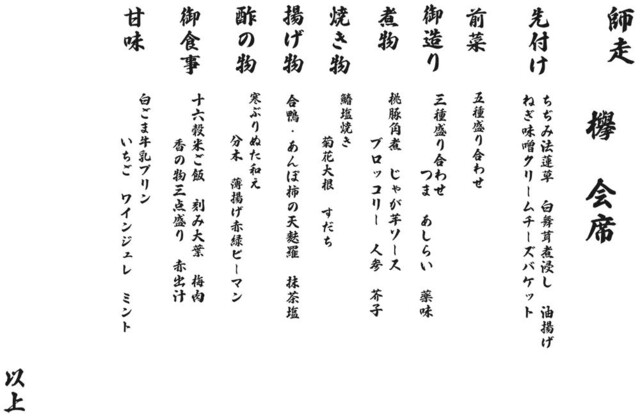 師走 欅 会席
先付け
ちぢみ法蓮草 白舞茸煮浸し 油揚げ
ねぎ味噌クリームチーズバケット
前菜
五種盛り合わせ
御造り
三種盛り合わせ
つま あしらい 薬味
煮物
桃豚角煮 じゃが芋ソース
ブロッコリー 人参 芥子
焼き物
鰆塩焼き
菊花大根 すだち
揚げ物
合鴨・あんぽ柿の天麩羅 抹茶塩
酢の物
寒ぶりぬた和え
分木 薄揚げ赤緑ピーマン
御食事
十六穀米ご飯 刻み大葉 梅肉
香の物三点盛り 赤出汁
甘味
白ごま牛乳プリン
いちご ワインジュレ ミント
以上